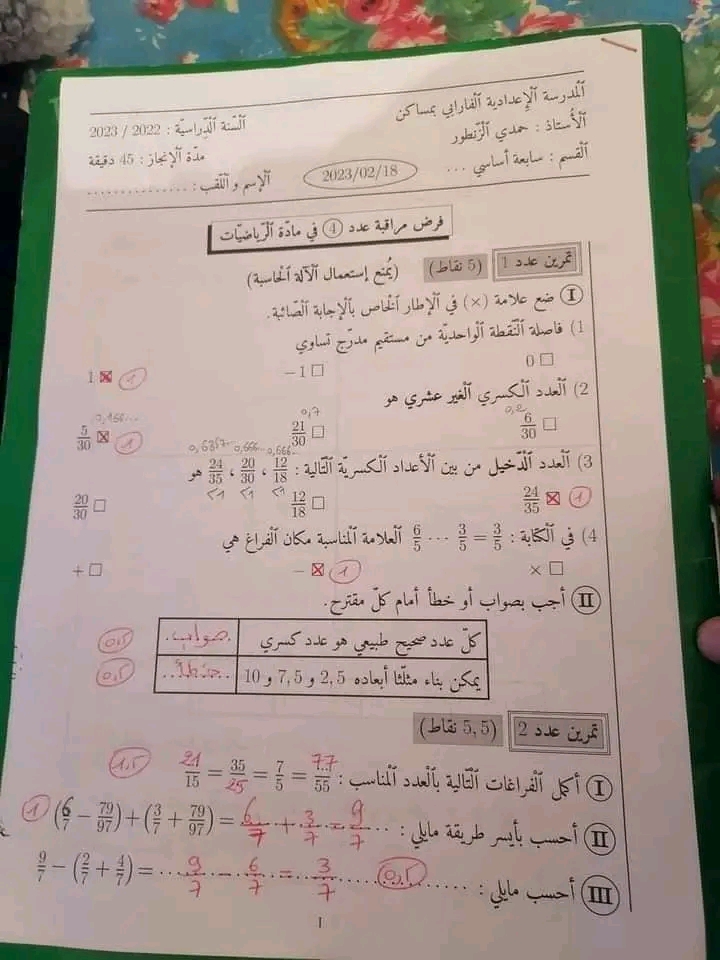 المدرسة الإعدادية الفارابي بمساكن
الأستاذ : حمدي الزنطور
السنة الدراسية : 2022 / 2023
القسم : سابعة أساسي ...
2023/02/18
مدة الإنجاز : 45 دقيقة
الإسم و اللقب : ...............
فرض مراقبة عدد 4 في مادة الرياضيات
تمرين عدد 1 (5 نقاط) (يمنع إستعمال الآلة الحاسبة)
I ضع علامة (×) في الإطار الخاص بالإجابة الصائبة.
1) فاصلة النقطة الواحدية من مستقيم مدرج تساوي
☐ 0 ☐ −1 ☒ 1 1
2) العدد الكسري الغير عشري هو
0,2 0,7 0,166...
☐ 6/30 ☐ 21/30 ☒ 5/30 1
3) العدد الدخيل من بين الأعداد الكسرية التالية : 12/18 ، 20/30 ، 24/35 هو
0,666.. 0,666...
☒ 24/35 1 ☐ 12/18 ☐ 20/30
4) في الكتابة : 6/5 ... 3/5 = 3/5 العلامة المناسبة مكان الفراغ هي
☐ × ☒ − 1 ☐ +
II أجب بصواب أو خطأ أمام كل مقترح.
كل عدد صحيح طبيعي هو عدد كسري صواب 0,5
يمكن بناء مثلثا أبعاده 2,5 و 7,5 و 10 خطأ 0,5
تمرين عدد 2 (5,5 نقاط)
I أكمل الفراغات التالية بالعدد المناسب : 21/15 = 35/25 = 7/5 = 77/55 1,5
II أحسب بأيسر طريقة مايلي : (6/7 − 79/97) + (3/7 + 79/97) = 6/7 + 3/7 = 9/7 1
III أحسب مايلي : 9/7 − (2/7 + 4/7) = 9/7 − 6/7 = 3/7 0,5
1